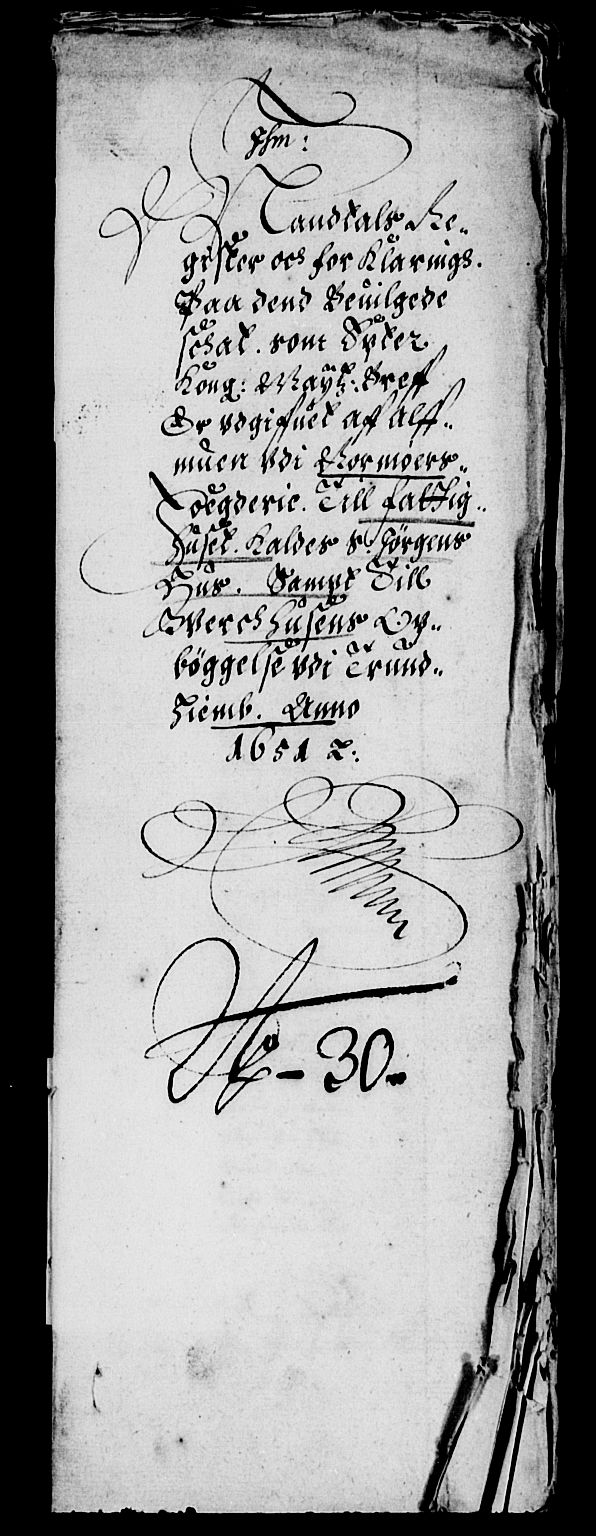 Ihm:
Mandtals Re„
gister och for Klarings.
Paa dend Beuilgede
schat. som Effter
Kong: Maytz: Breff
Er vdgifuet aff Alff„
muen vdi Normoers„
Foegderie. Till fattig„
huset. Kaldes S. Jörgens
Huus. Sampt Till
Werch husens Op„
böggelse vdi Trund„
hiemb. Anno
1651 &:
No – 30.